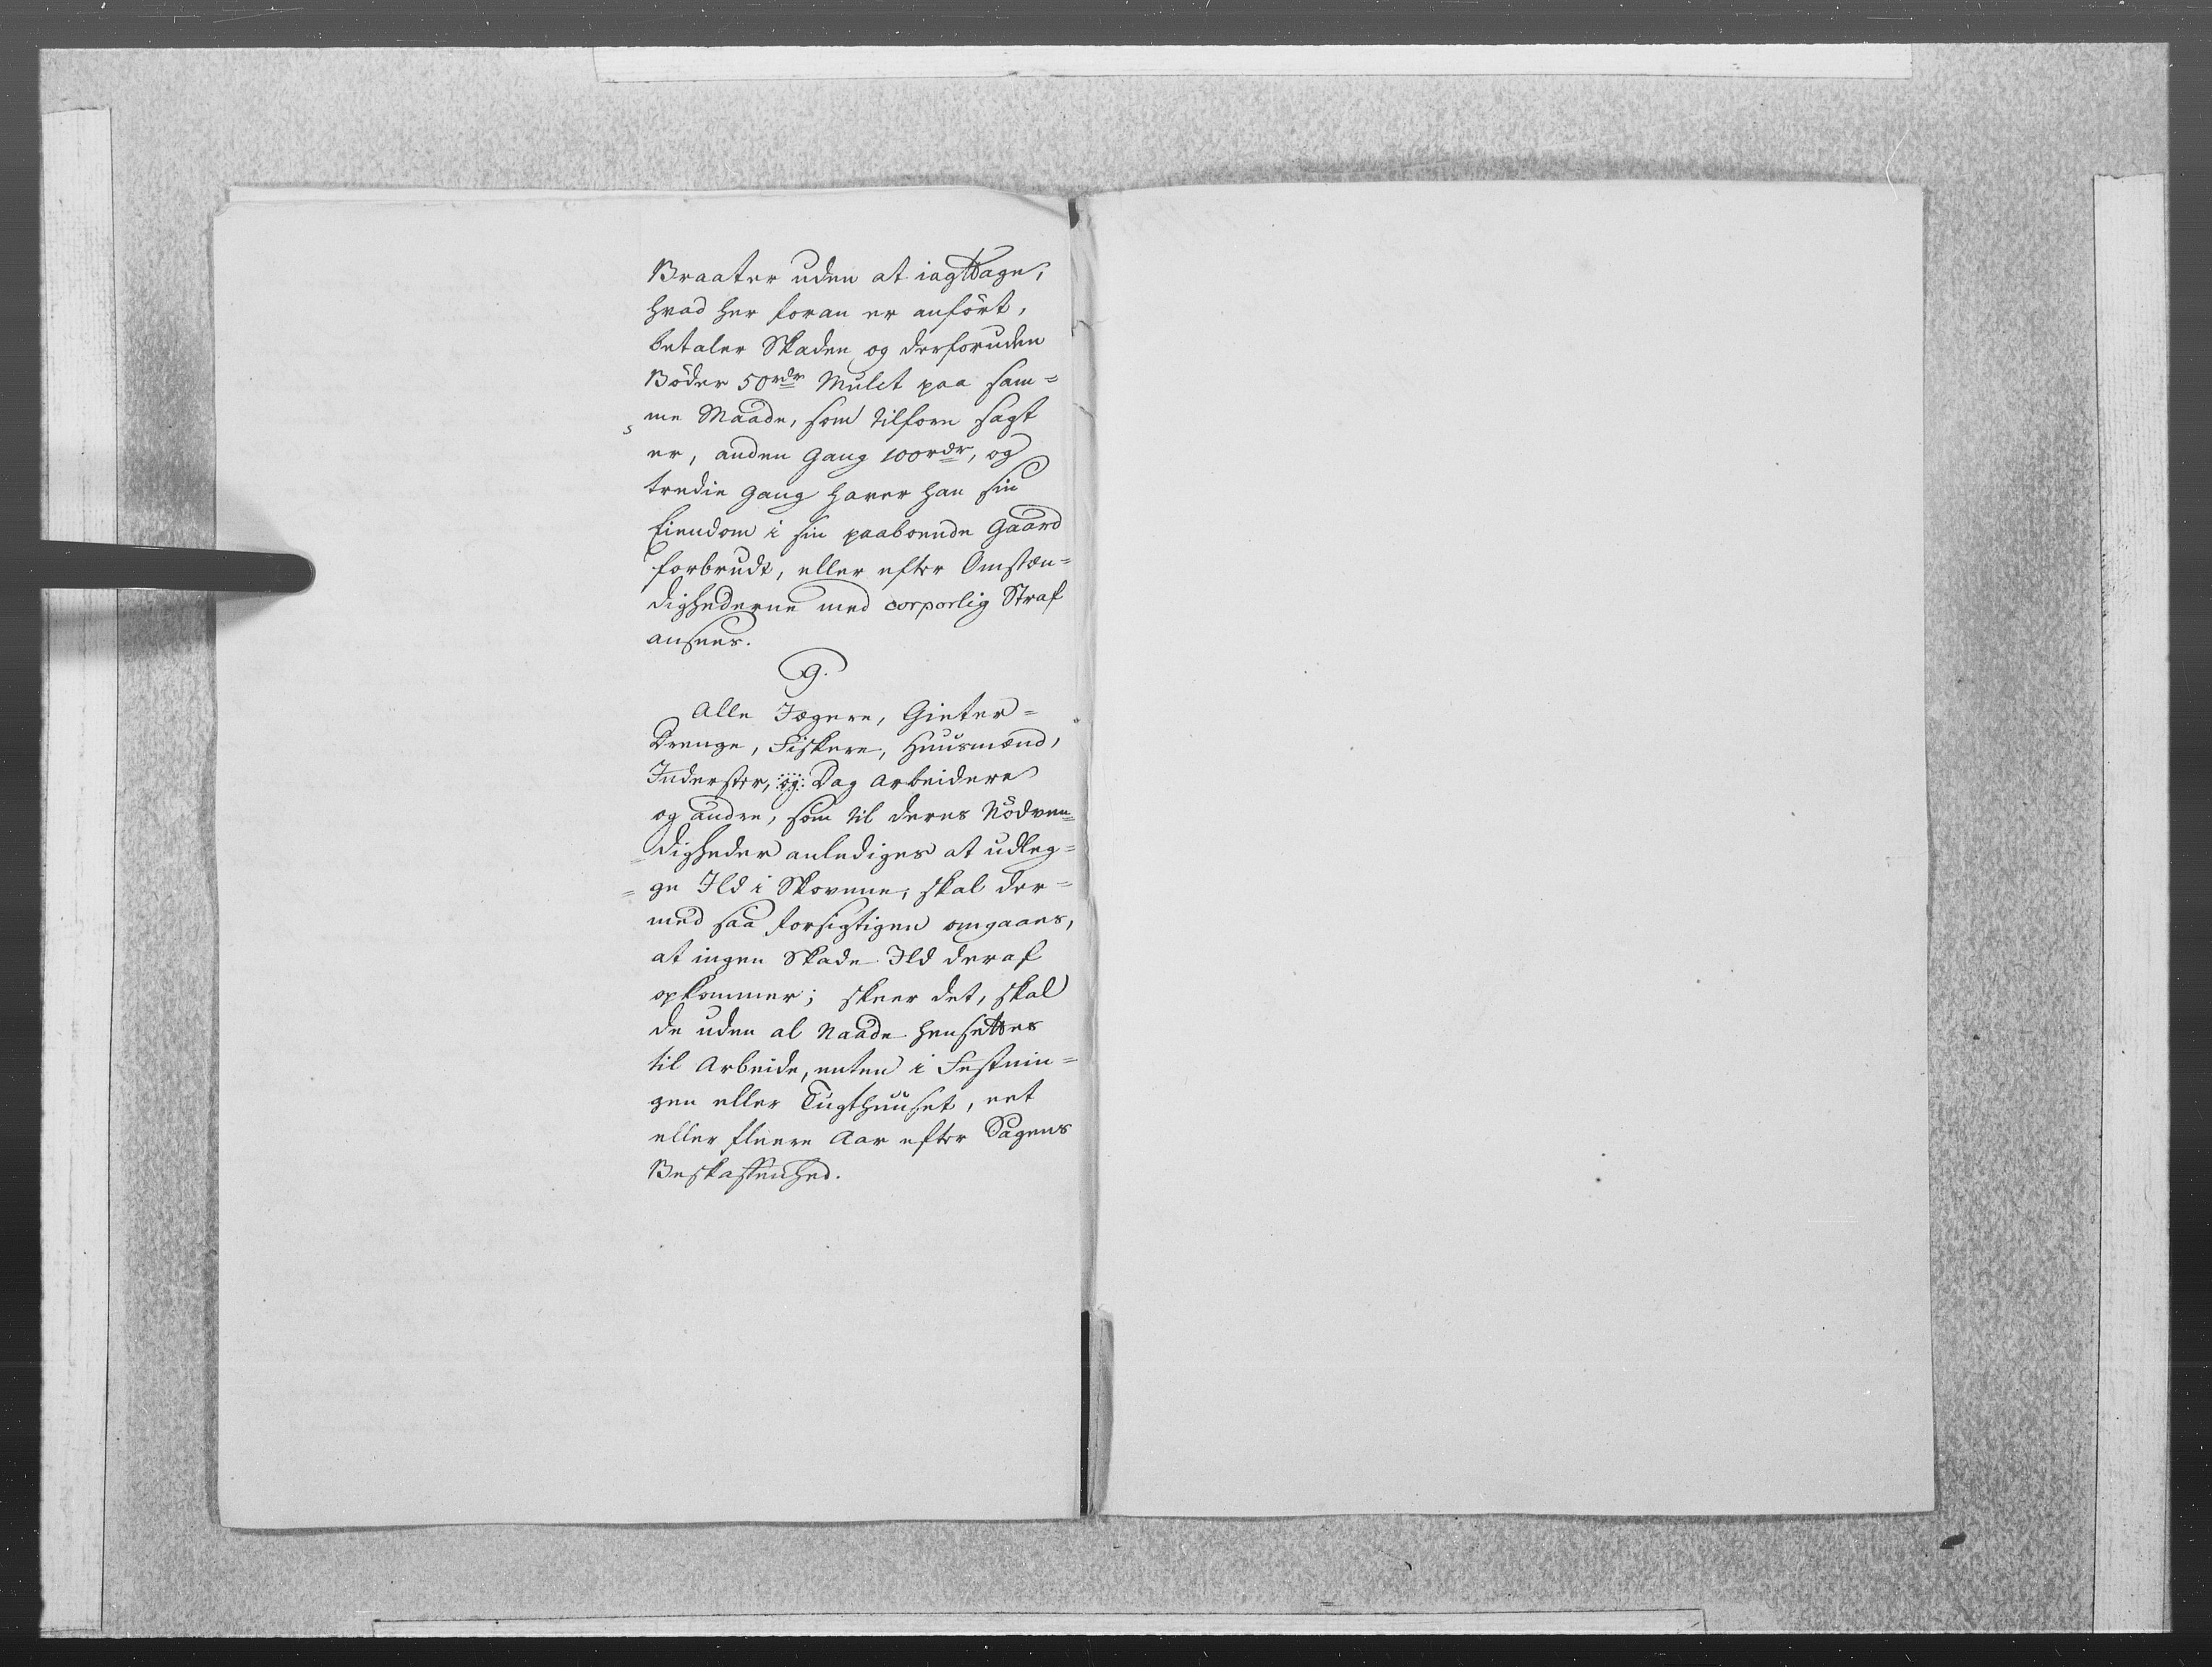 Braater uden at iagttage,
hvad her foran er anført,
betaler Skaden og derforuden
Bøder 50 rdr Mulct paa sam=
me Maade, som tilforn sagt
er, anden Gang 100 rdr, og
tredie Gang haver han sin
Eiendom i sin paaboende Gaard
forbrudt, eller efter Omstæn=
dighederne med corporlig Straf
ansees.
9.
Alle Jægere, Gieter=
Drenge, Fiskere, Huusmænd,
Inderster, og Dag Arbeidere
og andre, som til deres Nødven=
digheder anlediges at udleg=
ge Ild i Skovene, skal der=
med saa forsigtigen omgaaes,
at ingen Skade Ild deraf
opkommer; skeer det, skal
de uden al Naade hensettes
til Arbeide, enten i Festnin=
gen eller Tugthuuset, eet
eller fleere Aar efter Sagens
Beskaffenhed.